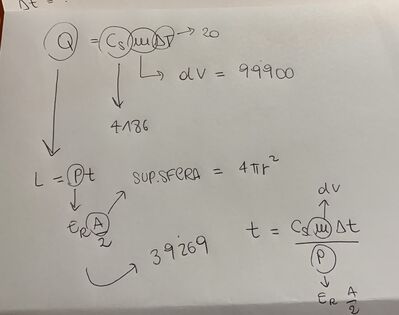 Δt = ?
Q = Cs m ΔT → 20
→ dV = 99900
4186
L = Pt
SUP.SFERA = 4πr²
ER A/2
39269
dV
t = Cs m Δt / P
ER A/2